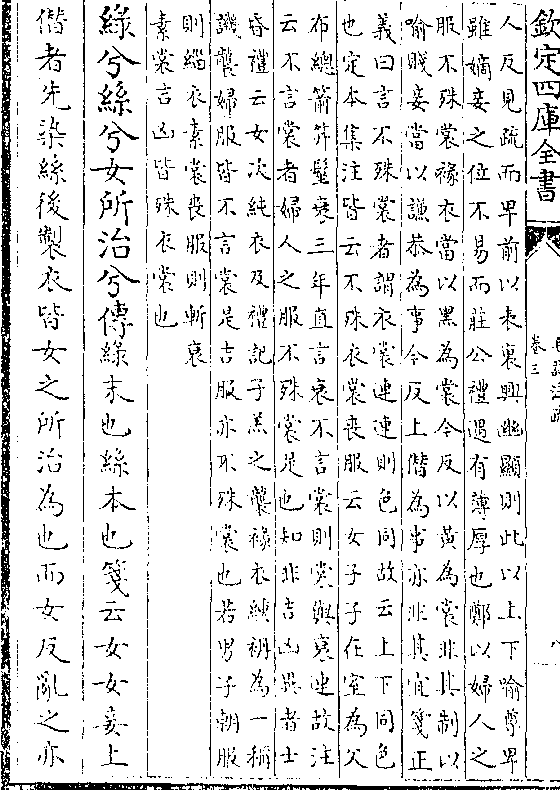 欽定四庫全書
卷三
人反見疏而卑前以表裏興幽顯則此以上下喻尊卑
雖嫡妾之位不易而莊公禮遇有薄厚也鄭以婦人之
服不殊裳褖衣當以黑為裳今反以黃為裳非其制以
喻賤妾當以謙恭為事今反上僭為事亦非其宜箋正
義曰言不殊裳者謂衣裳連連則色同故云上下同色
也定本集注皆云不殊衣裳喪服云女子子在室為父
布總箭笄髽衰三年直言衰不言裳則裳與衰連故注
云不言裳者婦人之服不殊裳是也知非吉凶異者士
昏禮云女次純衣及禮記子羔之襲褖衣纁袡為一稱
譏襲婦服皆不言裳是吉服亦不殊裳也若男子朝服
則緇衣素裳喪服則斬衰
素裳吉凶皆殊衣裳也
綠兮絲兮女所治兮傳綠末也絲本也箋云女女妾上
僭者先染絲後製衣皆女之所治為也而女反亂之亦